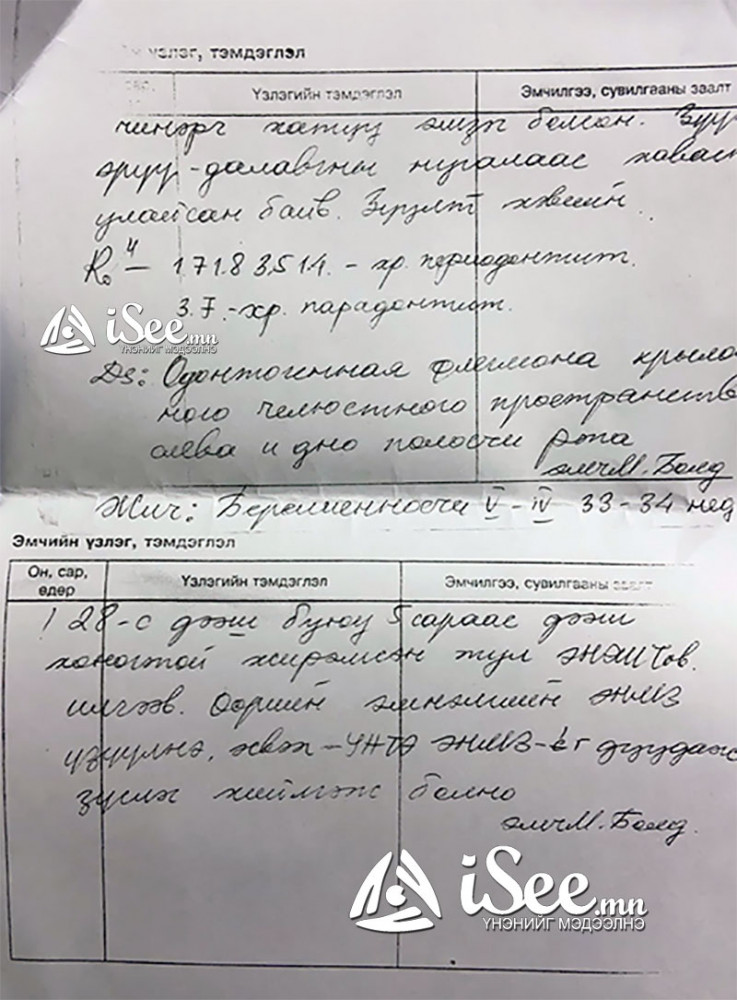 үзлэг, тэмдэглэл
Үзлэгийн тэмдэглэл Эмчилгээ, сувилгааны заалт
чинэрч хатуу эмзэг болсон. Зүүн
эрүү-далавчны нугалаас хаван
улайсан байв. Зүүлт хөвсийн
R₀⁴ – 1.7 1.8 3.5 1.4. – хр. периодонтит.
3.7. – хр. парадонтит.
iSee.mn
ҮНЭНИЙГ МЭДЭЭЛНЭ
Ds: Одонтогенная флегмона крыло-
ного челюстного пространств
слева и дно полости рта
эмч М. Болд
Жич: Беременности V – IV 33-34 нед
Эмчийн үзлэг, тэмдэглэл
Он, сар, өдөр Үзлэгийн тэмдэглэл Эмчилгээ, сувилгааны заалт
! 28-с дээш буюу 5 сараас дээш
хоногтой жирэмсэн тул ЭНЭШТөв.
илгээв. Өөрийн эмнэлгийн ЭМБ
үзүүлнэ, эсвэл – УНТЭ дуудаж
зүсэлж хиймээж болно
эмч М. Болд.
iSee.mn
ҮНЭНИЙГ МЭДЭЭЛНЭ